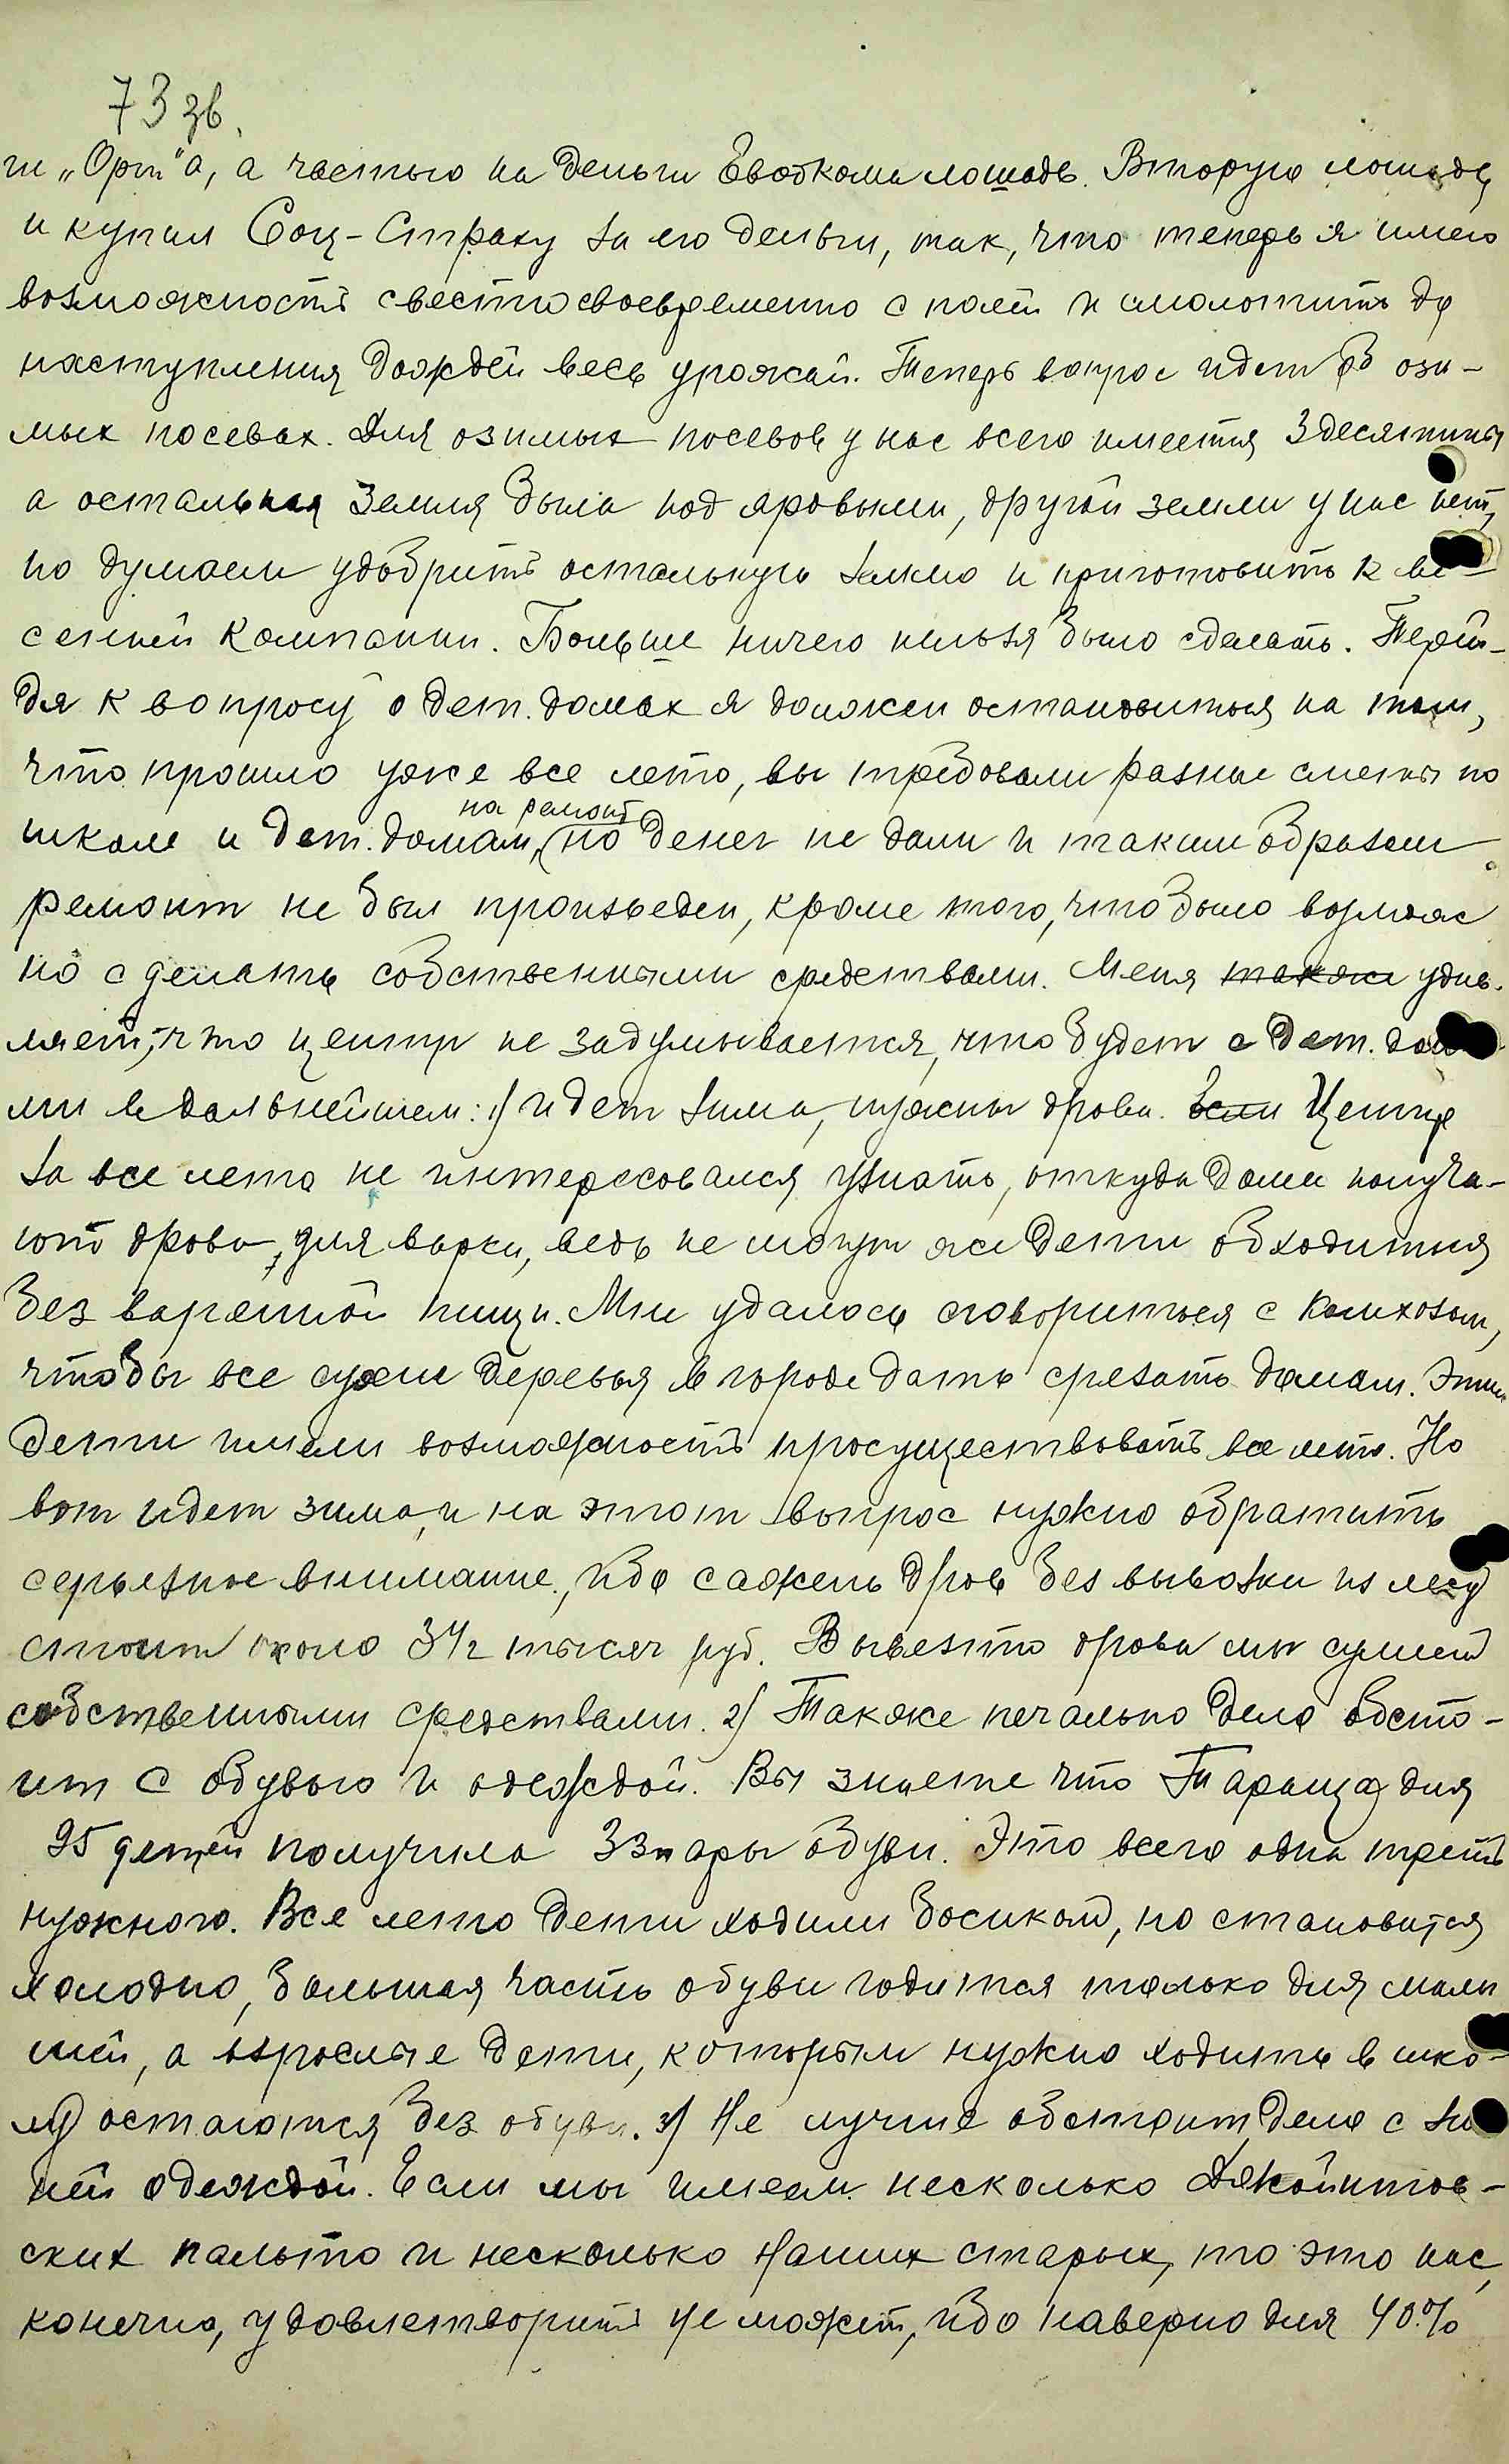 73 зв.
ги „Орт"а, а частью на деньги Евобкома лошадь. Вторую лошадь
и купил Соц-Страху за его деньги, так, что теперь я имею
возможность свести своевременно с полей и смолотить до
наступления дождей весь урожай. Теперь вопрос идет об ози-
мых посевах. Для озимых посевов у нас всего имеется 3 десятины
а остальная земля была под яровыми, другой земли у нас нет,
но думаем удобрить остальную землю и приготовить к ве-
сенней кампании. Больше ничего нельзя было сделать. Перей-
дя к вопросу о дет. домах я должен остановиться на том,
что прошло уже все лето, вы требовали разные сметы по
школе и дет. домам, на ремонт но денег не дали и таким образом
ремонт не был произведен, кроме того, что было возмож
но сделать собственными средствами. Меня также удив-
ляет, что центр не задумывается, что будет с дет. дома
ми в дальнейшем: 1) идет зима, нужны дрова. Если Центр
за все лето не интересовался узнать, откуда дома получа-
ют дрова для варки, ведь не могут же дети обходиться
без варенной пищи. Мне удалось сговориться с комхозом,
чтобы все сухие деревья в городе дать срезать домам. Этим
дети имели возможность просуществовать все лето. Но
вот идет зима, и на этот вопрос нужно обратить
серьезное внимание, ибо сажень дров без вывозки из лесу
стоит около 3½ тысяч руб. Вывезти дрова мы сумеем
собственными средствами. 2) Также печально дело обсто-
ит с обувью и одеждой. Вы знаете что Тараща для
95 детей получила 33 пары обуви. Это всего одна треть
нужного. Все лето дети ходили босиком, но становится
холодно, большая часть обуви годится только для малы
шей, а взрослые дети, которым нужно ходить в шко-
лу остаются без обуви. 3) Не лучше обстоит дело с зим
ней одеждой. Если мы имеем несколько Джойнтов-
ских пальто и несколько наших старых, то это нас,
конечно, удовлетворить не может, ибо наверно для 40%